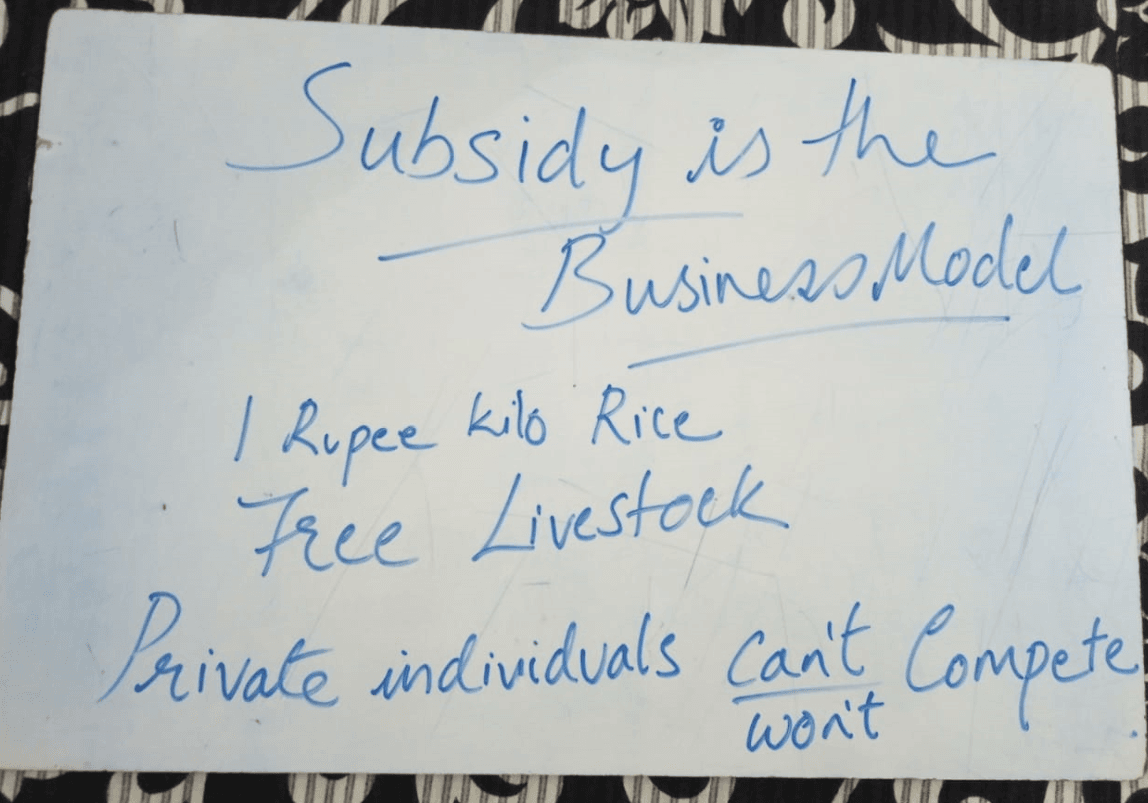 Subsidy is the
Business Model
1 Rupee kilo Rice
Free Livestock
Private individuals can't Compete.
won't